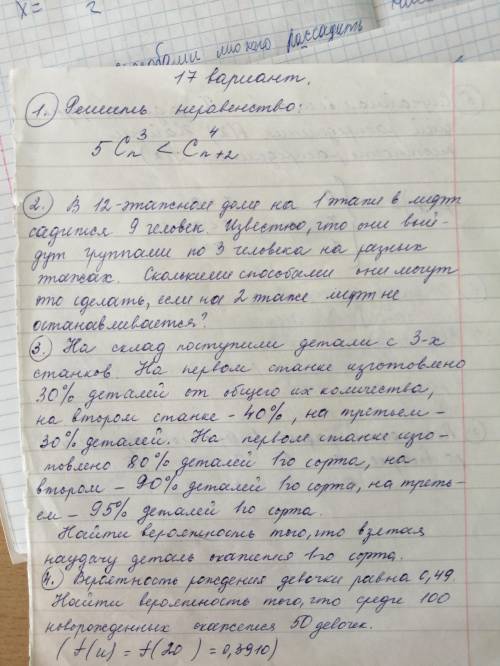 x = 2
способами можно рассадить
17 вариант.
1. Решить неравенство:
5 C_n^3 < C_{n+2}^4
2. В 12-этажном доме на 1 этаже в лифт
садится 9 человек. Известно, что они вый-
дут группами по 3 человека на разных
этажах. Сколькими способами они могут
это сделать, если на 2 этаже лифт не
останавливается?
3. На склад поступили детали с 3-х
станков. На первом станке изготовлено
30% деталей от общего их количества,
на втором станке - 40%, на третьем -
30% деталей. На первом станке изго-
товлено 80% деталей 1го сорта, на
втором - 90% деталей 1го сорта, на треть-
ем - 95% деталей 1го сорта.
Найти вероятность того, что взятая
наудачу деталь окажется 1го сорта.
4. Вероятность рождения девочки равна 0,49.
Найти вероятность того, что среди 100
новорожденных окажется 50 девочек.
(f(u) = f(20) = 0,3910)